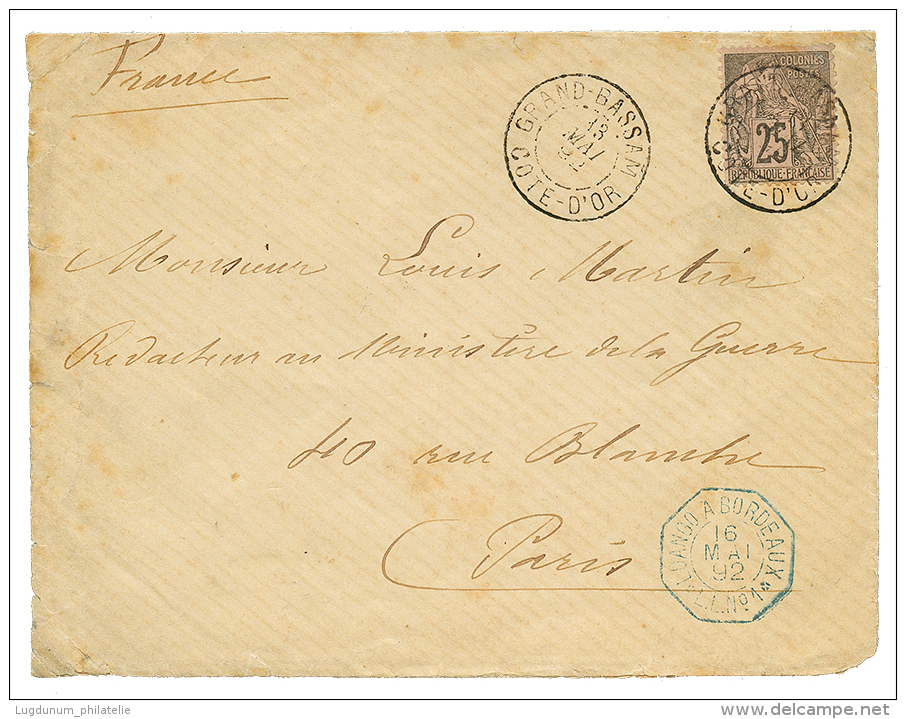 France
GRAND-BASSAM
13
MAI
92
COTE-D'OR
COLONIES
POSTES
25
RÉPUBLIQUE FRANÇAISE
Monsieur Louis Martin
Redacteur au Ministère de la Guerre
40 rue Blanche
Paris
LOANGO A BORDEAUX
16
MAI
92
L.L.Nº1
Lugdunum_philatelie
delcampe.net